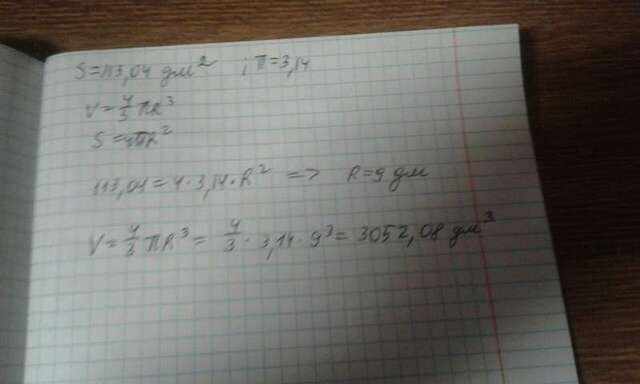 S=113,04 дм² ; π=3,14
V=4/3 πR³
S=4πR²
113,04=4·3,14·R² => R=9 дм
V=4/3 πR³= 4/3 · 3,14 · 9³= 3052,08 дм³